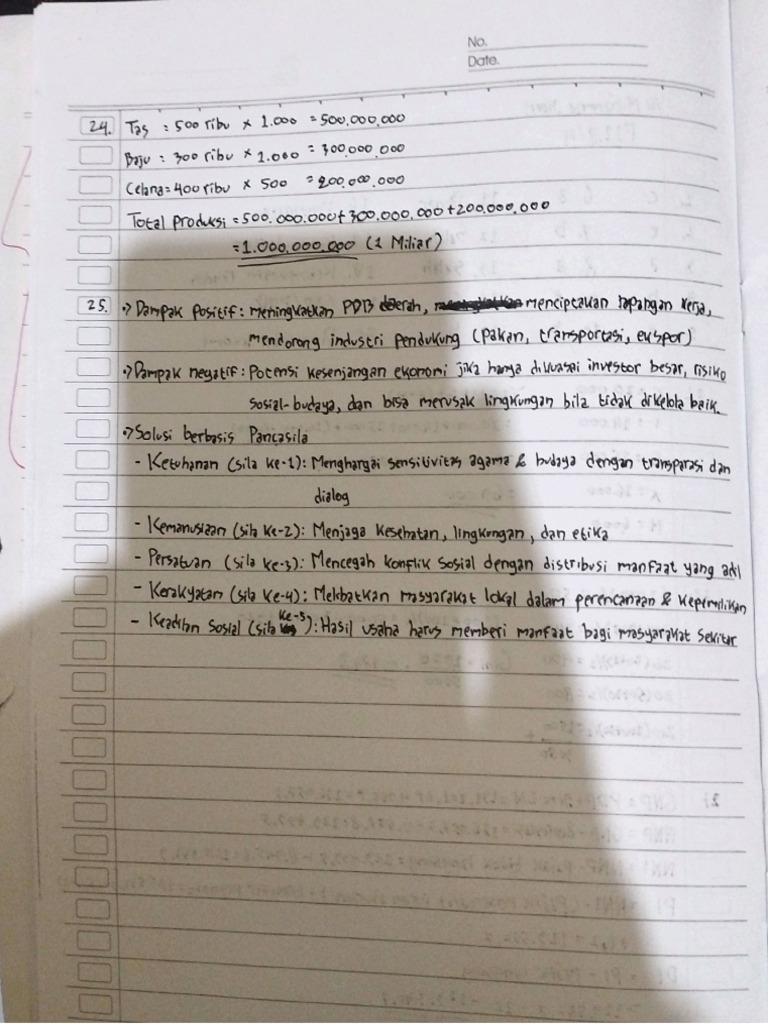 No.
Date.
24. Tas : 500 ribu × 1.000 = 500.000.000
Baju : 300 ribu × 1.000 = 300.000.000
Celana = 400 ribu × 500 = 200.000.000
Total Produksi = 500.000.000 + 300.000.000 + 200.000.000
= 1.000.000.000 (1 Miliar)
25. •> Dampak Positif : meningkatkan PDB daerah, menciptakan lapangan kerja,
mendorong industri pendukung (pakan, transportasi, ekspor)
•> Dampak negatif : Potensi kesenjangan ekonomi jika hanya dikuasai investor besar, risiko
sosial-budaya, dan bisa merusak lingkungan bila tidak dikelola baik.
•> Solusi berbasis Pancasila
- Ketuhanan (sila ke-1) : Menghargai sensitivitas agama & budaya dengan transparasi dan
dialog
- Kemanusiaan (sila ke-2) : Menjaga kesehatan, lingkungan, dan etika
- Persatuan (sila ke-3) : Mencegah konflik sosial dengan distribusi manfaat yang adil
- Kerakyatan (sila ke-4) : Melibatkan masyarakat lokal dalam perencanaan & kepemilikan
- Keadilan Sosial (sila ke-5) : Hasil usaha harus memberi manfaat bagi masyarakat sekitar